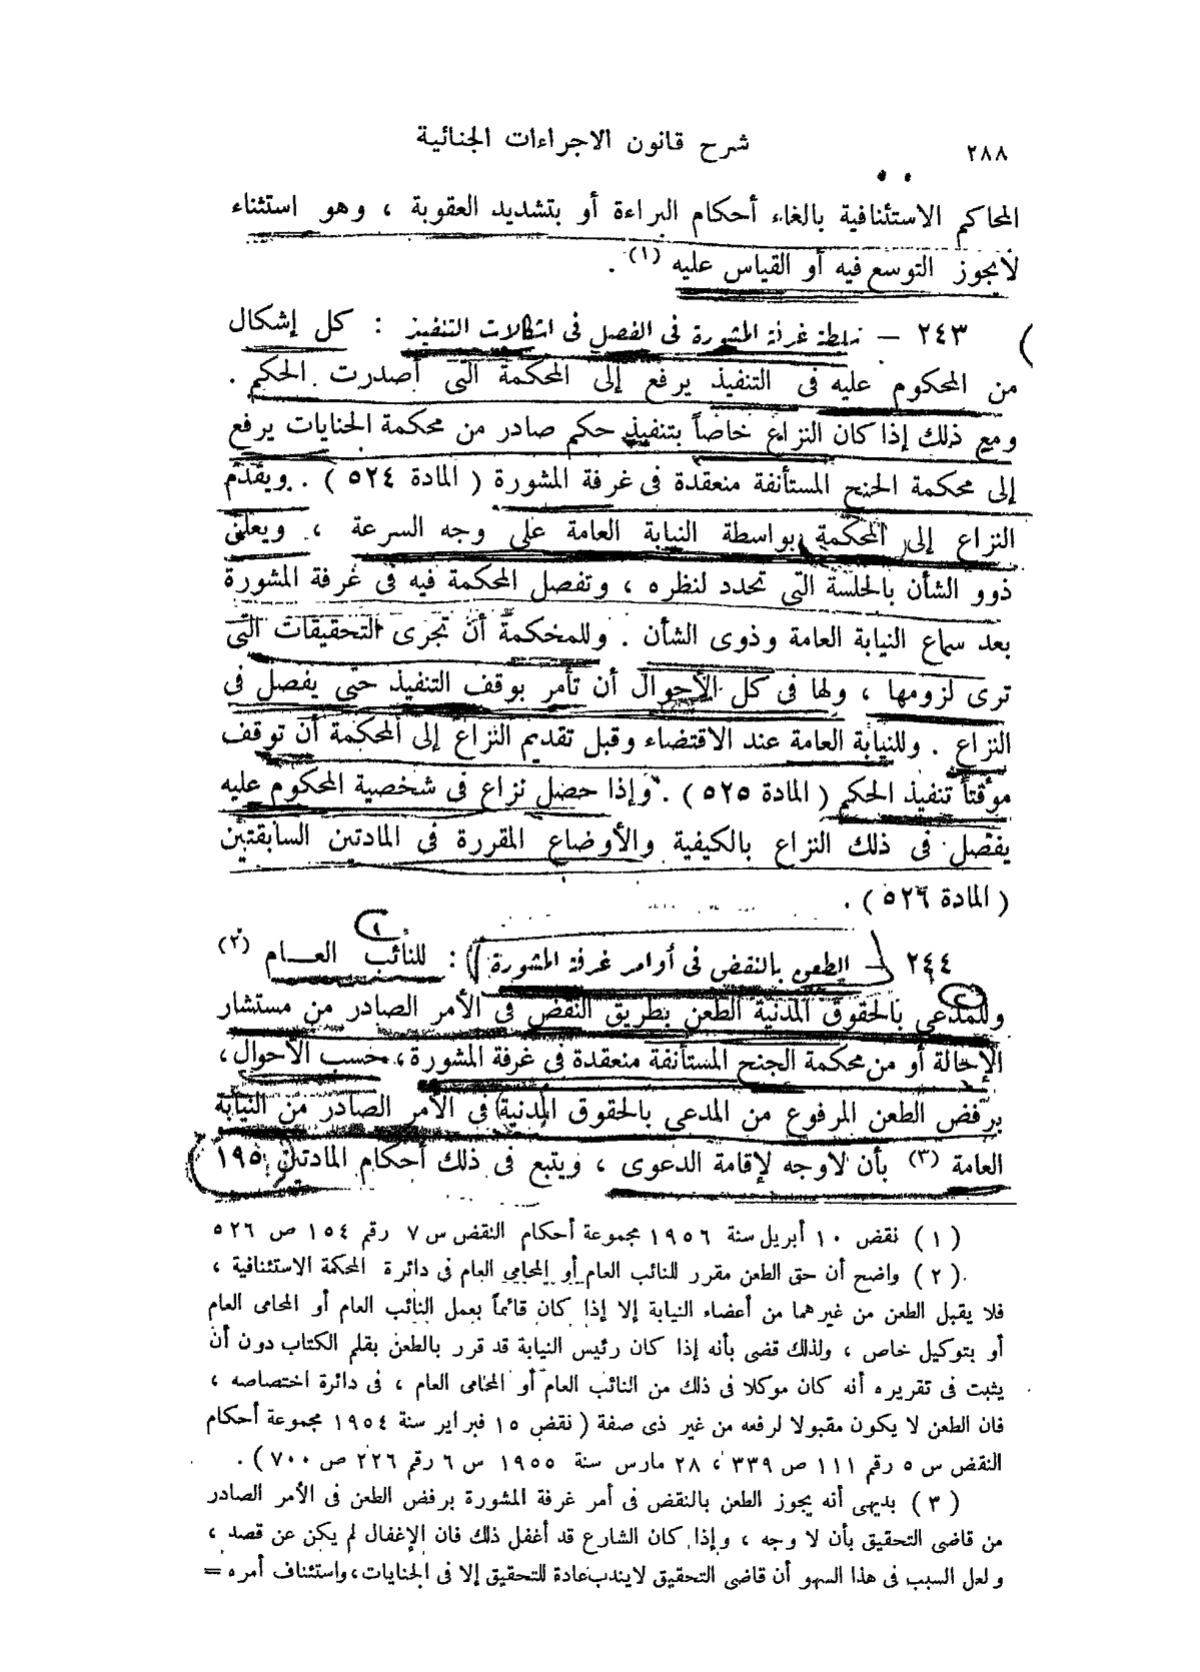 ٢٨٨
شرح قانون الاجراءات الجنائية
المحاكم الاستئنافية بالغاء أحكام البراءة أو بتشديد العقوبة ، وهو استثناء
لا يجوز التوسع فيه أو القياس عليه (١) .
٢٤٣ – سلطة غرفة المشورة فى الفصل فى اشكالات التنفيذ : كل إشكال
من المحكوم عليه فى التنفيذ يرفع إلى المحكمة التى أصدرت الحكم .
ومع ذلك إذا كان النزاع خاصاً بتنفيذ حكم صادر من محكمة الجنايات يرفع
إلى محكمة الجنح المستأنفة منعقدة فى غرفة المشورة ( المادة ٥٢٤ ) . ويقدم
النزاع إلى المحكمة بواسطة النيابة العامة على وجه السرعة ، ويعلن
ذوو الشأن بالجلسة التى تحدد لنظره ، وتفصل المحكمة فيه فى غرفة المشورة
بعد سماع النيابة العامة وذوى الشأن . وللمحكمة أن تجرى التحقيقات التى
ترى لزومها ، ولها فى كل الأحوال أن تأمر بوقف التنفيذ حتى يفصل فى
النزاع . وللنيابة العامة عند الاقتضاء وقبل تقديم النزاع إلى المحكمة أن توقف
موقتاً تنفيذ الحكم ( المادة ٥٢٥ ) . وإذا حصل نزاع فى شخصية المحكوم عليه
يفصل فى ذلك النزاع بالكيفية والأوضاع المقررة فى المادتين السابقتين
( المادة ٥٢٦ ) .
٢٤٤ – الطعن بالنقض فى أوامر غرفة المشورة : للنائب العـــام (٢)
وللمدعى بالحقوق المدنية الطعن بطريق النقض فى الأمر الصادر من مستشار
الإحالة أو من محكمة الجنح المستأنفة منعقدة فى غرفة المشورة ، حسب الأحوال ،
برفض الطعن المرفوع من المدعى بالحقوق المدنية فى الأمر الصادر من النيابة
العامة (٣) بأن لاوجه لإقامة الدعوى ، ويتبع فى ذلك أحكام المادتين ١٩٥
( ١ ) نقض ١٠ أبريل سنة ١٩٥٦ مجموعة أحكام النقض س ٧ رقم ١٥٤ ص ٥٢٦
( ٢ ) واضح أن حق الطعن مقرر للنائب العام أو المحامى العام فى دائرة المحكمة الاستئنافية ،
فلا يقبل الطعن من غيرهما من أعضاء النيابة إلا إذا كان قائماً بعمل النائب العام أو المحامى العام
أو بتوكيل خاص ، ولذلك قضى بأنه إذا كان رئيس النيابة قد قرر بالطعن بقلم الكتاب دون أن
يثبت فى تقريره أنه كان موكلا فى ذلك من النائب العام أو المحامى العام ، فى دائرة اختصاصه ،
فان الطعن لا يكون مقبولا لرفعه من غير ذى صفة ( نقض ١٥ فبراير سنة ١٩٥٤ مجموعة أحكام
النقض س ٥ رقم ١١١ ص ٣٣٩ ، ٢٨ مارس سنة ١٩٥٥ س ٦ رقم ٢٢٦ ص ٧٠٠ ) .
( ٣ ) بديهى أنه يجوز الطعن بالنقض فى أمر غرفة المشورة برفض الطعن فى الأمر الصادر
من قاضى التحقيق بأن لا وجه ، وإذا كان الشارع قد أغفل ذلك فان الإغفال لم يكن عن قصد ،
ولعل السبب فى هذا السهو أن قاضى التحقيق لايندب عادة للتحقيق إلا فى الجنايات ، واستئناف أمره =